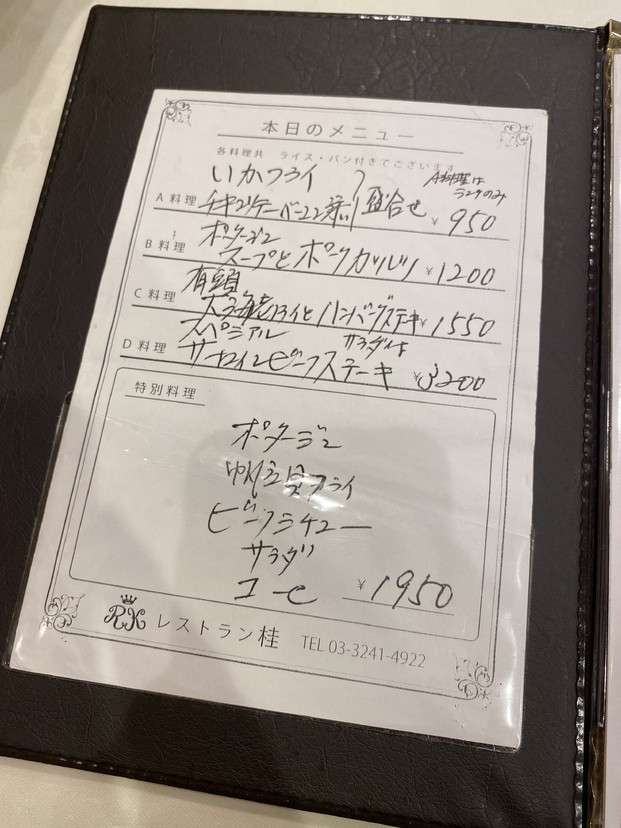 本日のメニュー
各料理共 ライス・パン付きでございます
A料理は
ランチのみ
いかフライ
A 料理 チキン 添い 盛合せ ¥950
ポタージュ
B 料理 スープとポークカツレツ ¥1200
有頭
C 料理 大海老フライとハンバーグステーキ ¥1550
スペシアル サラダ付
D 料理 サーロインビーフステーキ ¥3200
特別料理
ポタージュ
帆立貝フライ
ビーフシチュー
サラダ
コーヒー ¥1950
RK レストラン桂 TEL 03-3241-4922